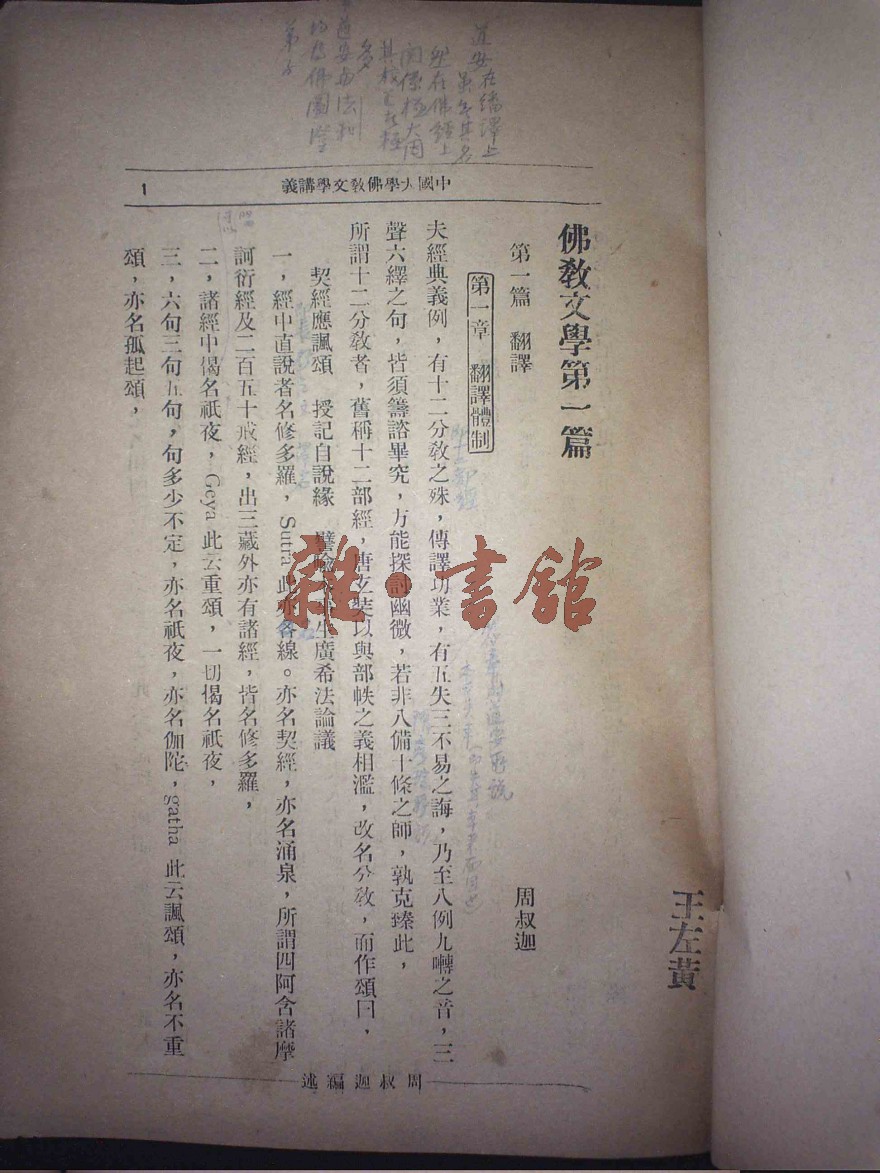 中國大學佛教文學講義
1
佛教文學第一篇
第一篇　翻譯
周叔迦
第一章　翻譯體制
夫經典義例，有十二分教之殊，傳譯功業，有五失三不易之誨，乃至八例九囀之音，三
聲六繹之句，皆須籌諮畢究，方能探討幽微，若非八備十條之師，孰克臻此，
所謂十二分教者，舊稱十二部經，唐玄奘以與部帙之義相濫，改名分教，而作頌曰，
契經應諷頌　授記自說緣　譬喻 生廣希法論議
一，經中直說者名修多羅，Sutra 此亦名線。亦名契經，亦名涌泉，所謂四阿含諸摩
訶衍經及二百五十戒經，出三藏外亦有諸經，皆名修多羅，
二，諸經中偈名祇夜，Geya 此云重頌，一切偈名祇夜，
三，六句三句五句，句多少不定，亦名祇夜，亦名伽陀，gatha 此云諷頌，亦名不重
頌，亦名孤起頌，
周叔迦編述
王左黃
雜·書館
道安在繙譯上
雖無其名
然在佛經上
關係極大因
其校
多
道安與法和
均為佛圖澄
弟子
十二部經